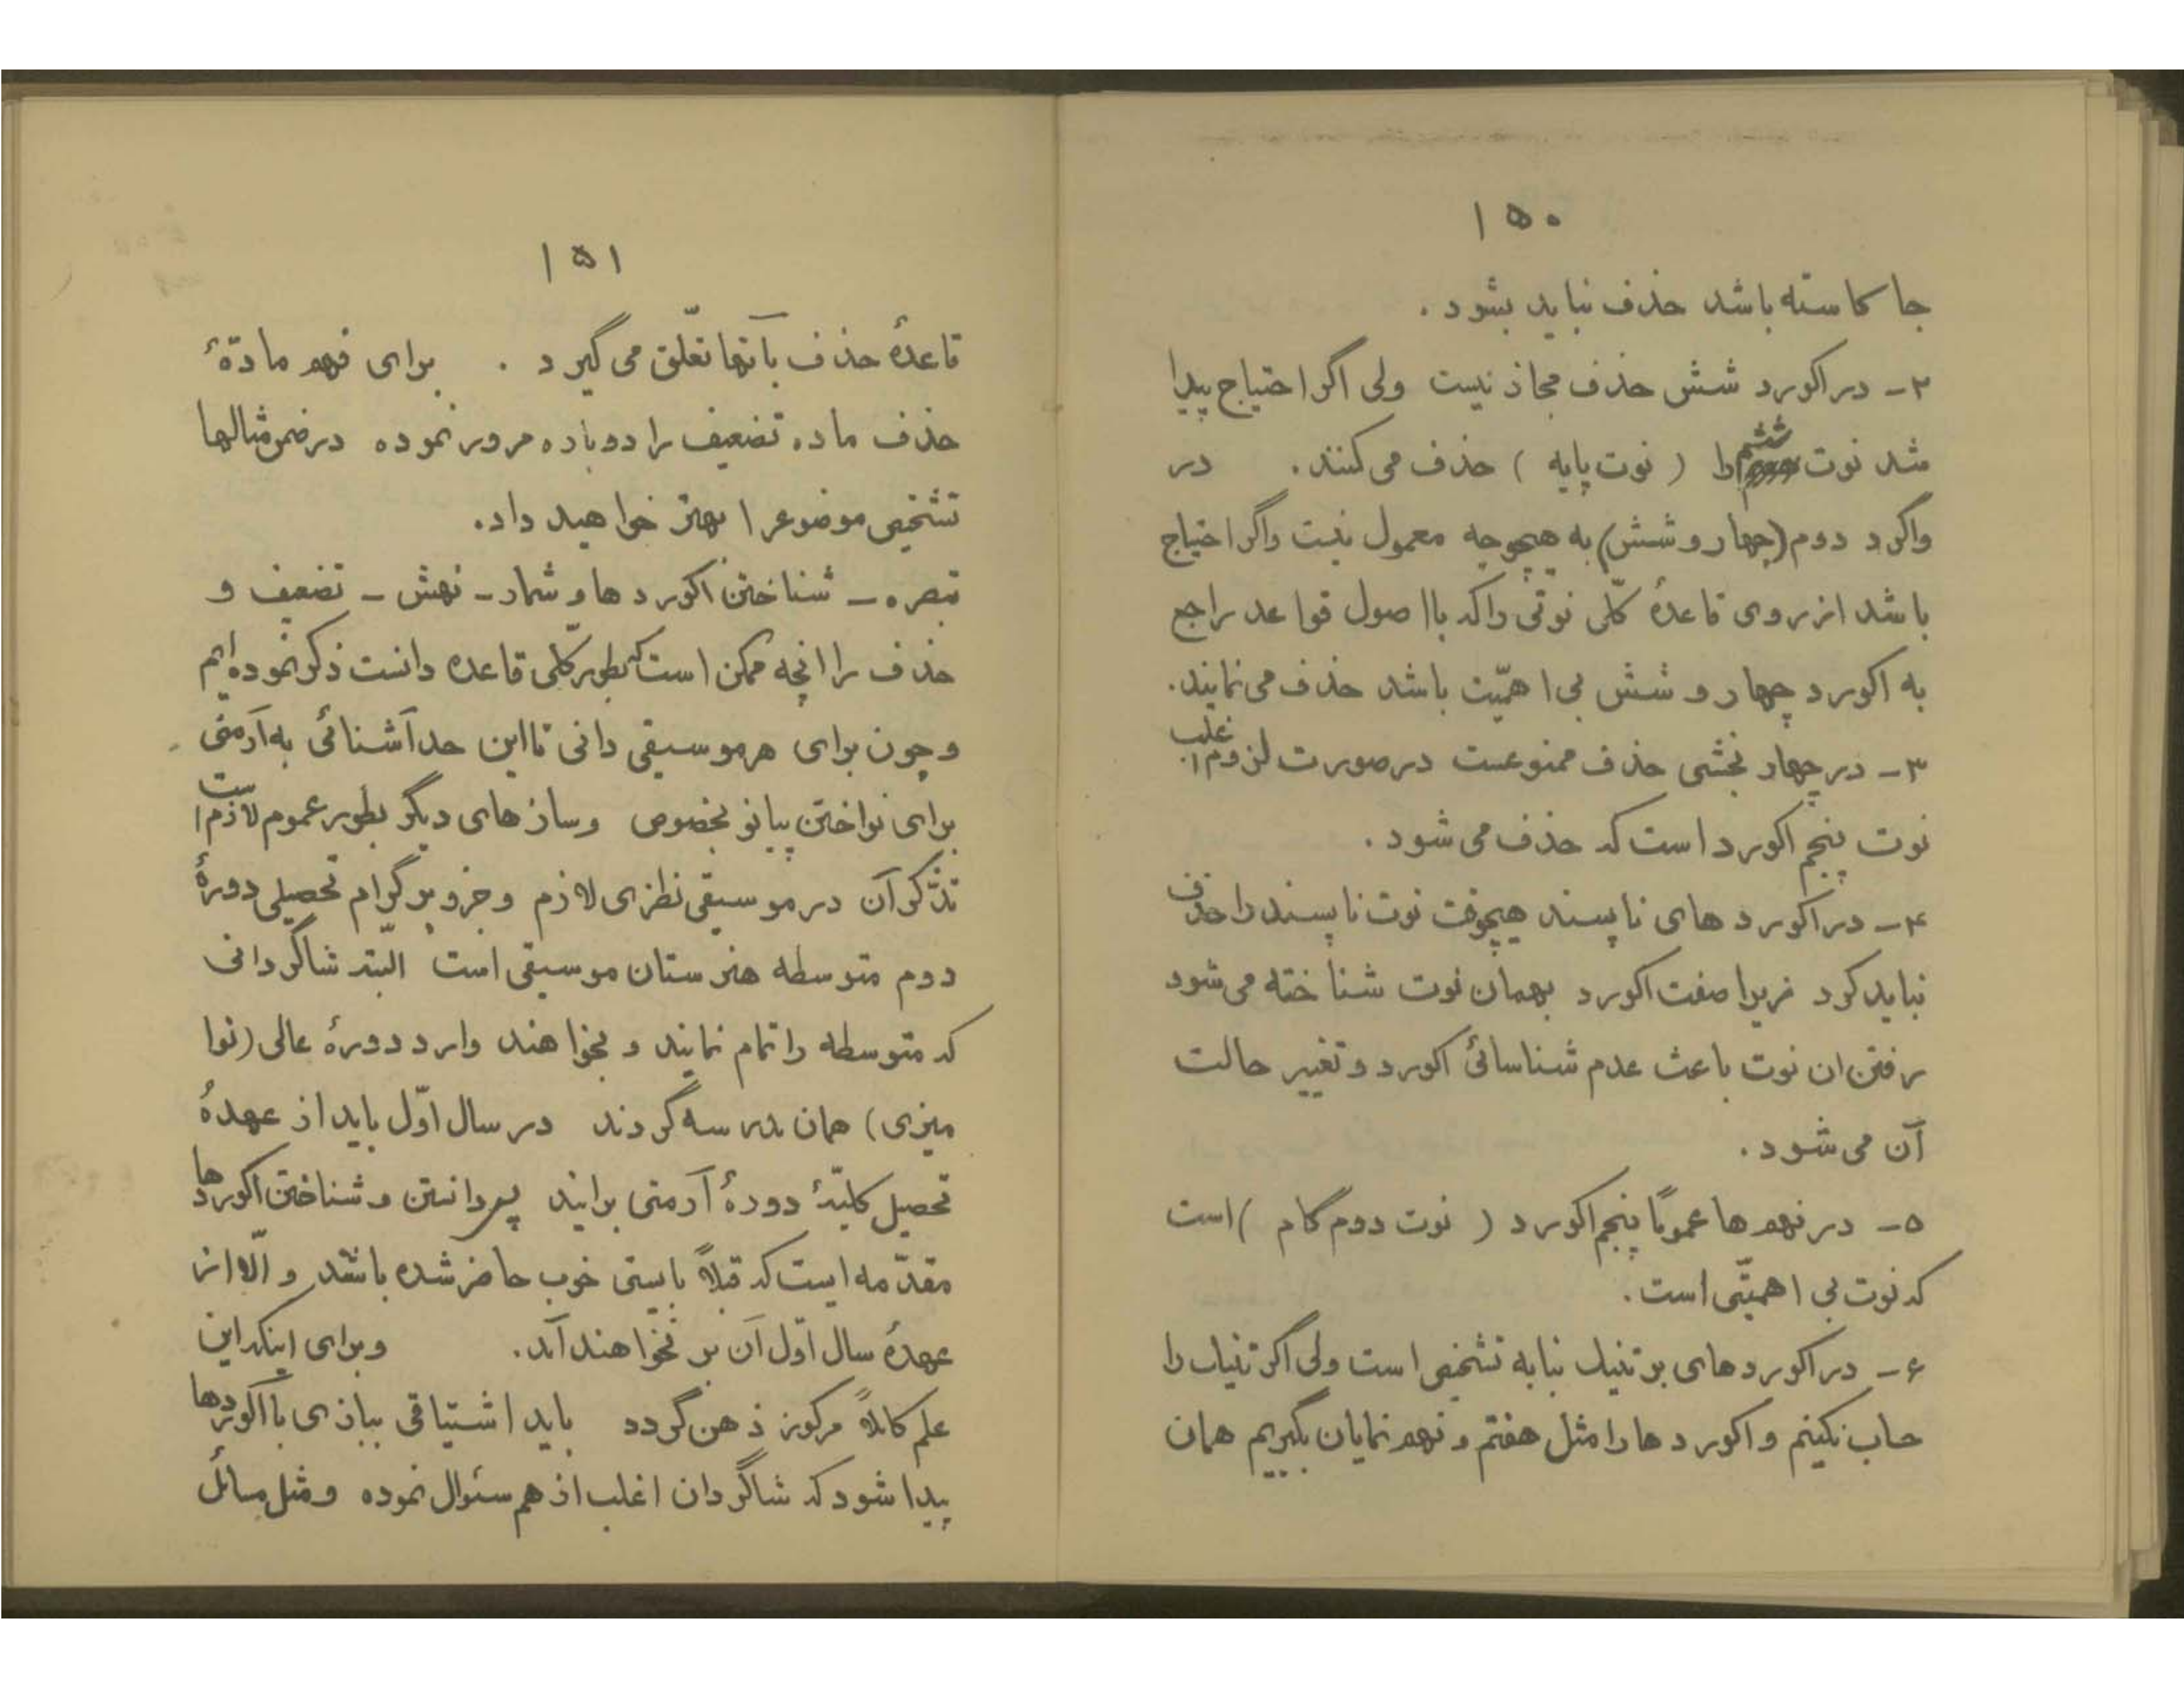 ۱۵۰
جا کاسته باشد حذف نباید بشود .
۲ – در اکورد شش حذف مجاز نیست ولی اگر احتیاج پیدا
شد نوت ششم را ( نوت پایه ) حذف می کنند . در
واگرد دوم (چهار و شش) به هیچوجه معمول نیست واگر احتیاج
باشد از روی قاعدهٔ کلّی نوتی راکه بااصول قواعد راجع
به اکورد چهار و شش بی اهمّیت باشد حذف می نمایند.
۳ – در چهار بخشی حذف ممنوعست در صورت لزوم اغلب
نوت پنجم اکورد است که حذف می شود .
۴ – در اکورد های ناپسند هیچوقت نوت ناپسند را حذف
نباید کرد زیرا صفت اکورد بهمان نوت شناخته می شود
رفتن ان نوت باعث عدم شناسائی اکورد و تغییر حالت
آن می شود .
۵ – در نهم ها عموماً پنجم اکورد ( نوت دوم گام ) است
که نوت بی اهمیّتی است .
۶ – در اکورد های بر تنیک بنا به تشخیص است ولی اگر تنیک را
حساب نکنیم و اکورد ها را مثل هفتم و نهم نمایان بگیریم همان
۱۵۱
قاعدهٔ حذف بآنها تعلّق می گیرد . برای فهم مادّهٔ
حذف ماده تضعیف را دوباره مرور نموده در ضمن مثالها
تشخیص موضوعرا بهتر خواهید داد.
تبصره – شناختن اکورد ها و شمار – نهش – تضعیف و
حذف را انچه ممکن است که بطور کلّی قاعده دانست ذکر نموده ایم
و چون برای هر موسیقی دانی تا این حد آشنائی به آرمنی
برای نواختن پیانو بخصوص وساز های دیگر بطور عموم لازم است
تذّکر آن در موسیقی نظری لازم و جزو پرگرام تحصیلی دورهٔ
دوم متوسطه هنرستان موسیقی است البتّه شاگردانی
که متوسطه را تمام نمایند و بخواهند وارد دورهٔ عالی (نوا
میزی) همان مدرسه گردند در سال اوّل باید از عهدهٔ
تحصیل کلیّهٔ دورهٔ آرمنی برایند پس دانستن و شناختن اکوردها
مقدّمه ایست که قبلاً بایستی خوب حاضر شده باشد و الّا از
عهدهٔ سال اوّل آن بر نخواهند آمد. و برای اینکه این
علم کاملاً مرکوز ذهن گردد باید اشتیاقی ببازی با اکوردها
پیدا شود که شاگردان اغلب از هم سئوال نموده و مثل مسائل